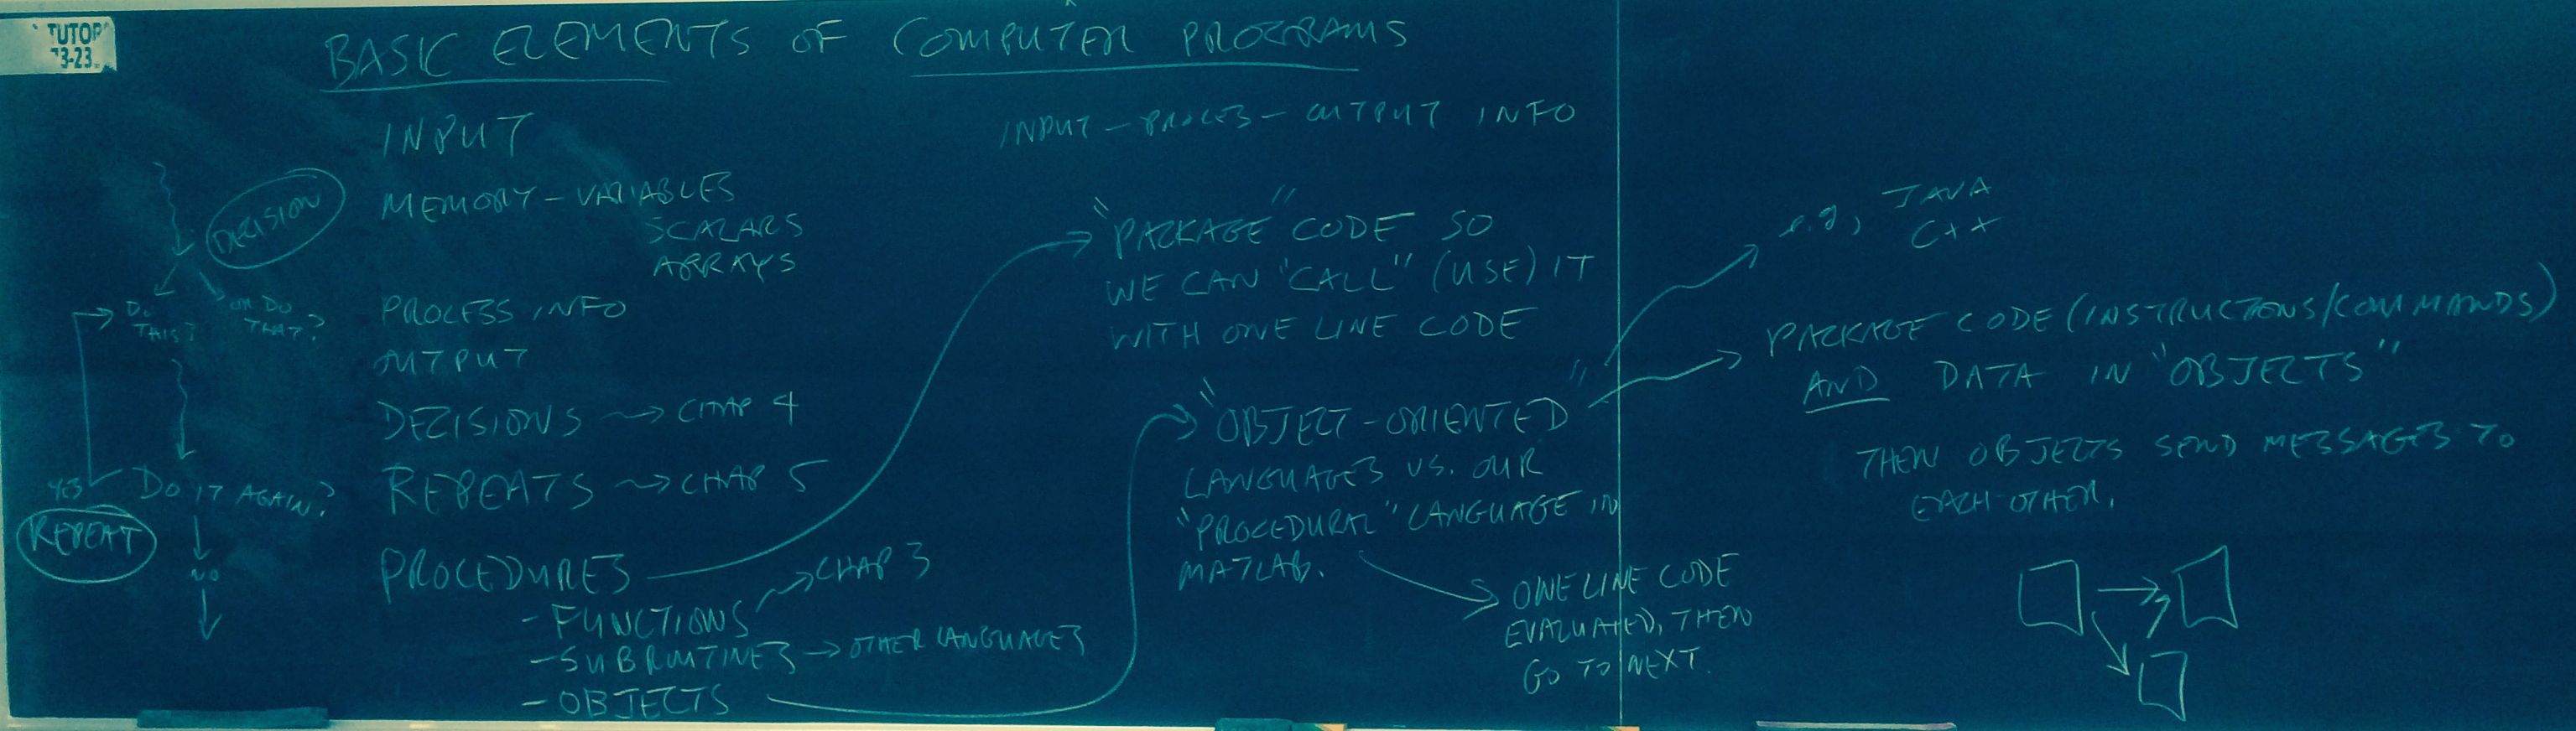 TUTOR
3-23
BASIC ELEMENTS OF COMPUTER PROGRAMS
INPUT
INPUT - PROCES - OUTPUT INFO
MEMORY - VARIABLES
SCALARS
ARRAYS
PROCESS INFO
OUTPUT
DECISIONS → CHAP 4
REPEATS → CHAP 5
PROCEDURES
- FUNCTIONS → CHAP 3
- SUBROUTINES → OTHER LANGUAGES
- OBJECTS
DECISION
DO THIS?
OR DO
THAT?
DO IT AGAIN?
YES
REPEAT
NO
"PACKAGE" CODE SO
WE CAN "CALL" (USE) IT
WITH ONE LINE CODE
"OBJECT-ORIENTED"
LANGUAGES VS. OUR
"PROCEDURAL" LANGUAGE IN
MATLAB.
ONE LINE CODE
EVALUATED, THEN
GO TO NEXT.
e.g., JAVA
C++
PACKAGE CODE (INSTRUCTIONS/COMMANDS)
AND DATA IN "OBJECTS"
THEN OBJECTS SEND MESSAGES TO
EACH OTHER.